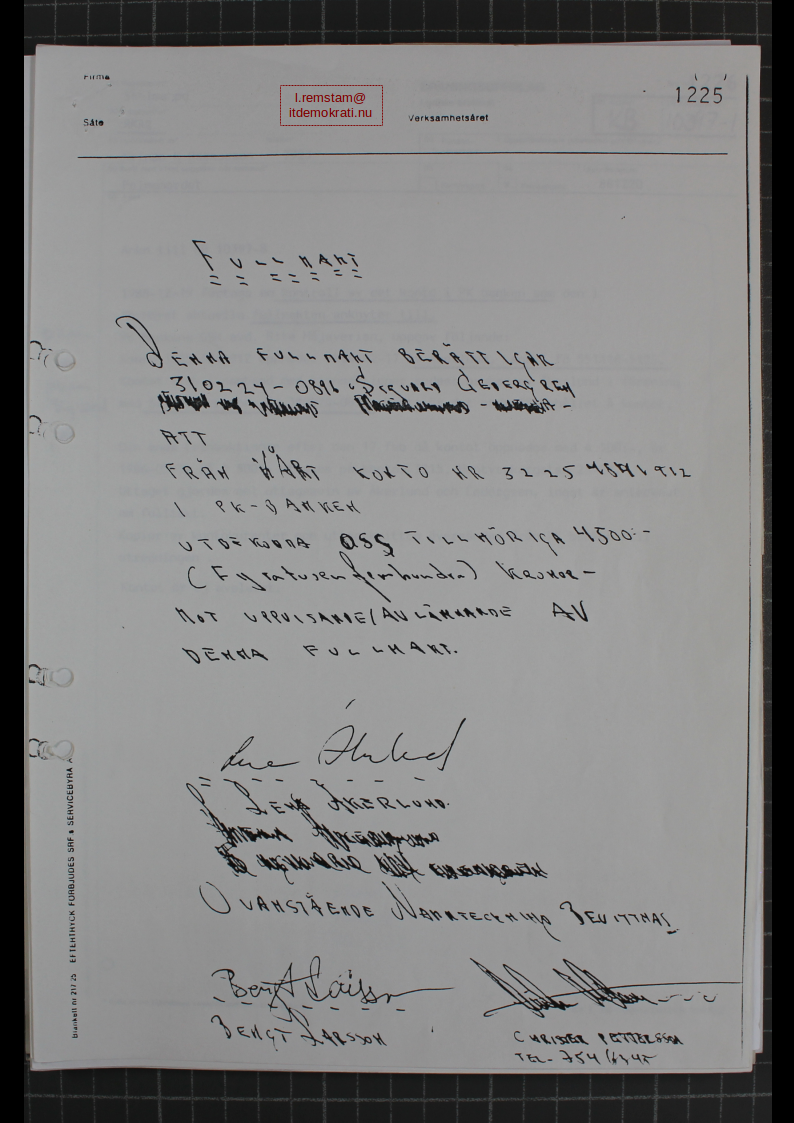 Firma
l.remstam@
itdemokrati.nu
1225
Säte
Verksamhetsåret
FULLMAKT
DENNA FULLMAKT BERÄTTIGAR
310224-0816 SIGVARD CEDERGREN
ATT
FRÅN VÅRT KONTO NR 3225
I PK-BANKEN
UTBEKOMMA OSS TILLHÖRIGA 4500:-
(Fyratusenfemhundra) KRONOR-
MOT UPPVISANDE/AVLÄMNANDE AV
DENNA FULLMAKT.
LENA ÅKERLUND.
OVANSTÅENDE NAMNTECKNING BEVITTNAS
Bengt Larsson
BENGT LARSSON
CHRISTER PETTERSSON
TEL- 754
Blankett nr 217 25 EFTERTRYCK FÖRBJUDES SRF:s SERVICEBYRÅ